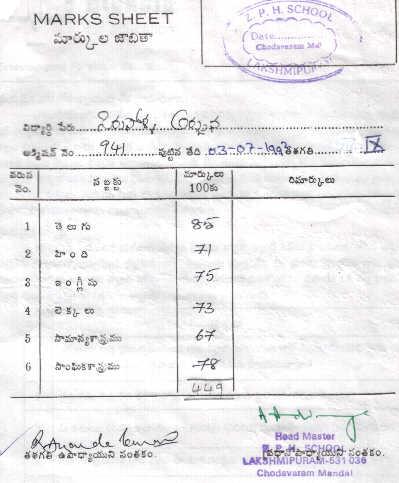 MARKS SHEET
మార్కుల జాబితా
Z. P. H. SCHOOL
Date
Chodavaram Mdl
LAKSHMIPURAM
విద్యార్థి పేరు
అడ్మిషన్ నెం. 941 పుట్టిన తేది 03-07-1997 తరగతి X
వరుస నెం. సబ్జక్టు మార్కులు 100కు రిమార్కులు
1 తెలుగు 85
2 హింది 71
3 ఇంగ్లీషు 75
4 లెక్కలు 73
5 సామాన్యశాస్త్రము 67
6 సాంఘికశాస్త్రము 78
449
Head Master
Z. P. H. SCHOOL
తరగతి ఉపాధ్యాయుని సంతకం. ప్రధానోపాధ్యాయుని సంతకం.
LAKSHMIPURAM-531 036
Chodavaram Mandal